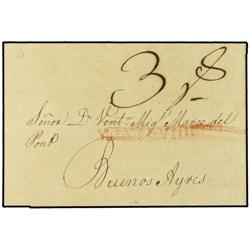 3 8
Señor Dn Ventª Migl Marcó del
Pont
Buenos Ayres.